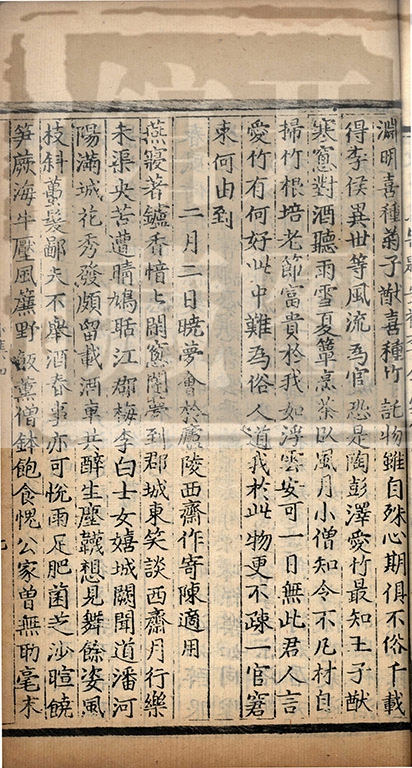 淵明喜種菊子猷喜種竹託物雖自殊心期俱不俗千載
得李侯異世等風流為官恐是陶彭澤愛竹最知王子猷
寒窻對酒聽雨雪夏簟烹茶卧風月小僧知令不凡材自
掃竹根培老節富貴於我如浮雲安可一日無此君人言
愛竹有何好此中難為俗人道我於此物更不疎一官窘
束何由到
二月二日曉夢會於廬陵西齋作寄陳適用
燕寢著鑪香愔〻閒窻闥夢到郡城東笑談西齋月行樂
未渠央苦遭晴鳩聒江郡梅李白士女嬉城闕聞道潘河
陽滿城花秀發頗留載酒車共醉生塵韈想見舞餘姿風
枝斜蠆髮鄙夫不舉酒春事亦可悅雨足肥菌芝沙暄饒
笋蕨海牛壓風簾野飯薰僧鉢飽食愧公家曾無助毫末